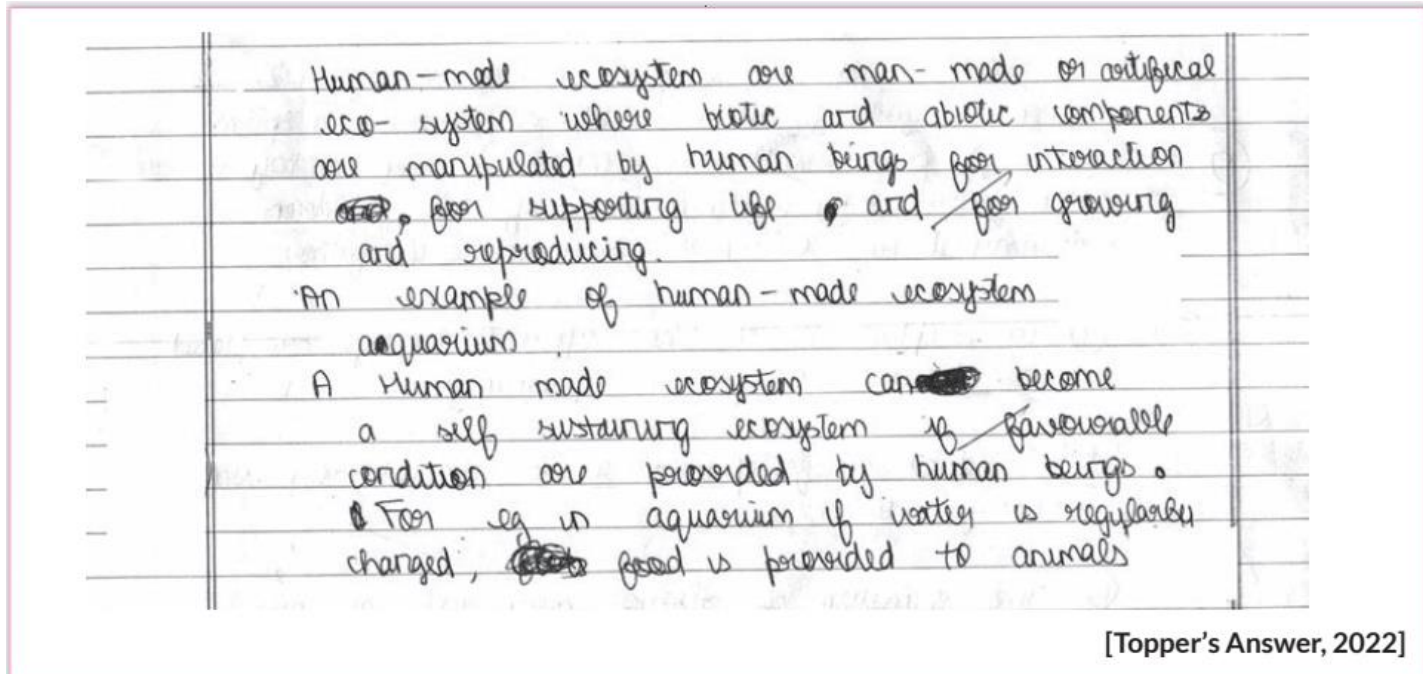 Human-made ecosystem are man-made or artifical
eco-system where biotic and abiotic components
are manipulated by human beings for interaction
, for supporting life and for growing
and reproducing.
An example of human-made ecosystem
aquarium.
A Human made ecosystem can become
a self sustaining ecosystem if favourable
condition are provided by human beings.
For eg in aquarium if water is regularly
changed, food is provided to animals
[Topper's Answer, 2022]